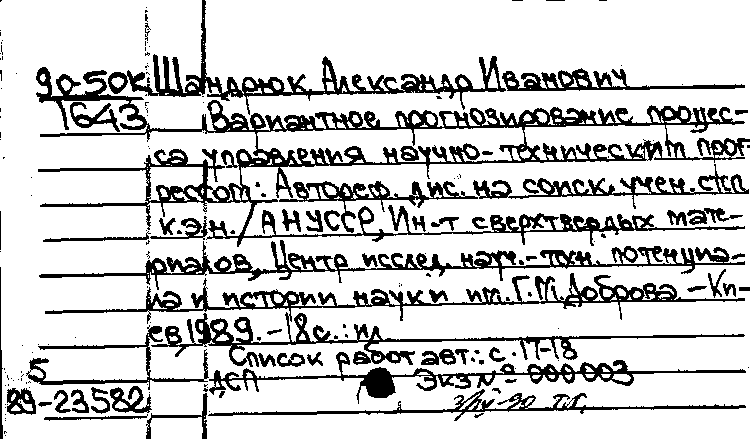 90-50к Шандрюк, Александр Иванович
1643 Вариантное прогнозирование процес-
са управления научно-техническим прог-
рессом: Автореф. дис. на соиск. учен. степ.
к.э.н. / АН УССР, Ин-т сверхтвердых мате-
риалов, Центр исслед. науч.-техн. потенциа-
ла и истории науки им. Г.М. Доброва. - Ки-
ев, 1989. - 18 с.: ил
Список работ авт.: с. 17-18
5
ДСП Экз № 000003
89-23582